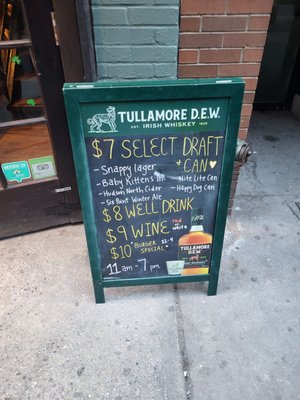 TULLAMORE D.E.W.
EST. IRISH WHISKEY 1829
$7 SELECT DRAFT
+ CAN
- Snappy lager
- Baby Kittens
- Hudson North Cider
- Six Point Winter Ale
- Nite Lite Can
- Happy Day Can
$8 WELL DRINK
$9 WINE red or white
$10 "BURGER SPECIAL"
11am - 7pm
TULLAMORE
D.E.W.
IRISH WHISKEY